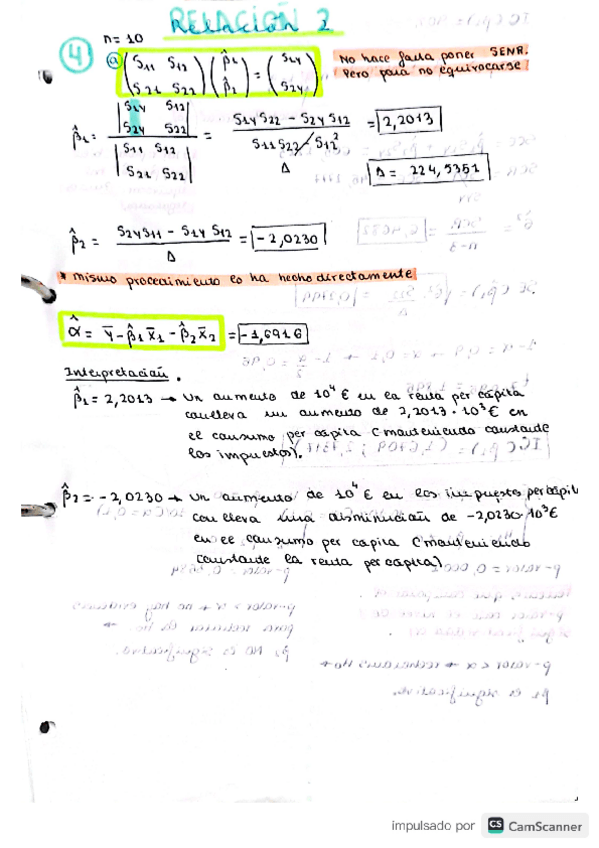 RELACIÓN 2
n = 10
4
a) (S11 S12 / S21 S22) (β̂1 / β̂2) = (S1Y / S2Y)
No hace falta poner SENR.
Pero para no equivocarse
β̂1 = |S1Y S12 / S2Y S22| / |S11 S12 / S21 S22| = (S1Y S22 − S2Y S12) / (S11 S22 − S12²) = 2,2013
Δ
Δ = 224,5351
β̂2 = (S2Y S11 − S1Y S12) / Δ = -2,0230
* mismo procedimiento lo ha hecho directamente
α̂ = Ȳ − β̂1 X̄1 − β̂2 X̄2 = -1,6916
Interpretación.
β̂1 = 2,2013 → Un aumento de 10⁴ € en la renta per cápita
conlleva un aumento de 2,2013 · 10³ € en
el consumo per cápita (manteniendo constante
los impuestos).
β̂2 = -2,0230 → Un aumento de 10⁴ € en los impuestos per cápit
conlleva una disminución de -2,0230·10³€
en el consumo per cápita (manteniendo
constante la renta per cápita)
impulsado por CS CamScanner